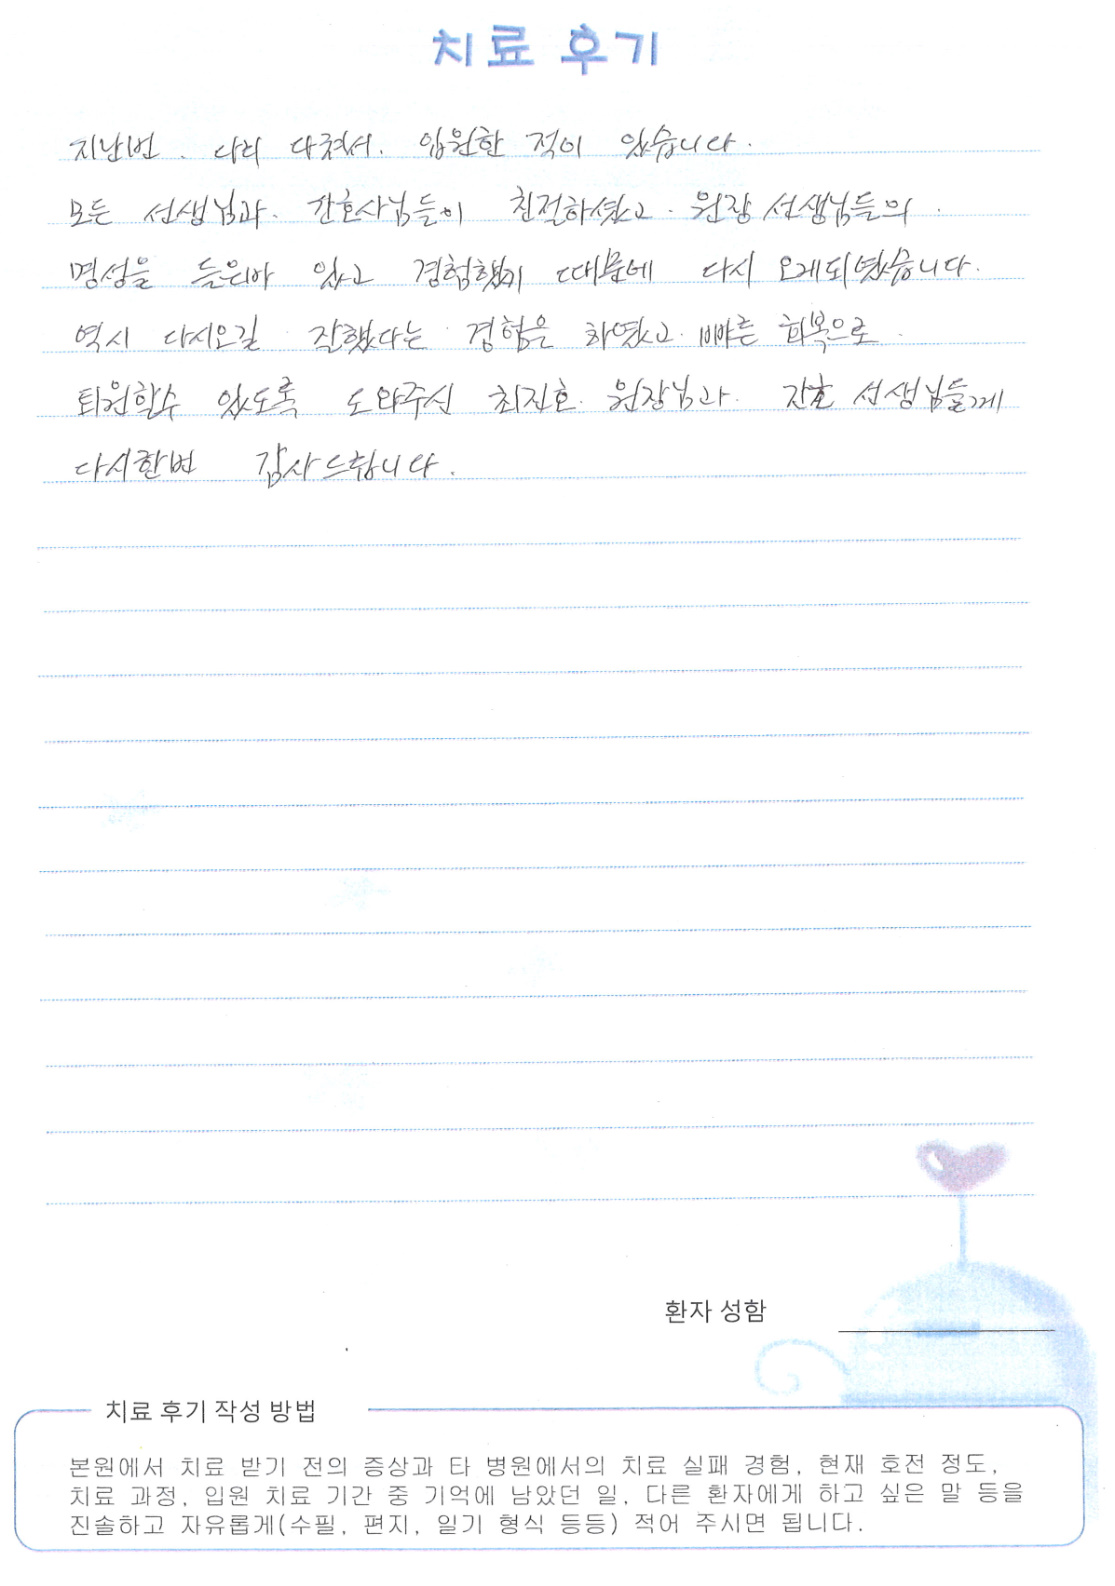 치료 후기
지난번. 다리 다쳐서. 입원한 적이 있습니다.
모든 선생님과. 간호사님들이 친절하셨고. 원장 선생님들의.
명성을 들은바 있고 경험했기 때문에 다시 오게되었습니다.
역시 다시오길 잘했다는 경험을 하였고. 빠른 회복으로.
퇴원할수 있도록 도와주신 최진호 원장님과. 간호 선생님들께
다시한번 감사드립니다.
환자 성함
치료 후기 작성 방법
본원에서 치료 받기 전의 증상과 타 병원에서의 치료 실패 경험, 현재 호전 정도,
치료 과정, 입원 치료 기간 중 기억에 남았던 일, 다른 환자에게 하고 싶은 말 등을
진솔하고 자유롭게(수필, 편지, 일기 형식 등등) 적어 주시면 됩니다.